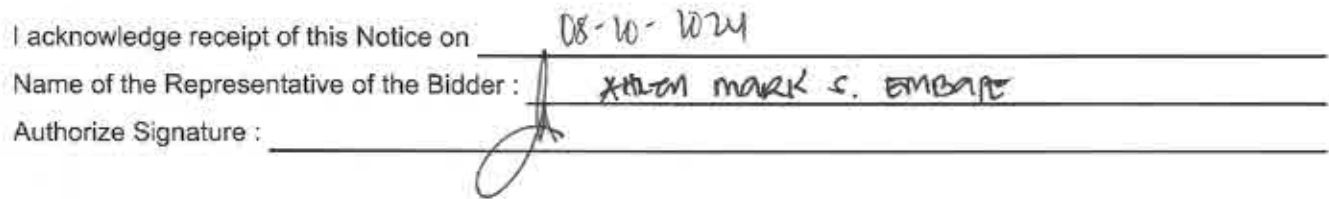 I acknowledge receipt of this Notice on 08-20-2024
Name of the Representative of the Bidder : MARK S.
Authorize Signature :